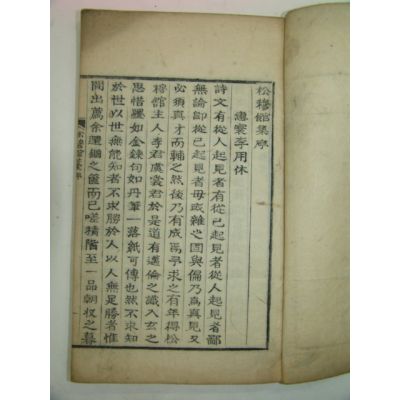 松穆館集序
惠寰李用休
詩文有從人起見者有從已起見者從人起見者鄙
無論即從已起見者毋或雜之固與偏乃爲真見又
必須真才而輔之然後乃有成焉予求之有年得松
穆館主人李君虞裳君於是道有邁倫之識入玄之
思惜墨如金鍊句如丹筆一落紙可傳也然不求知
於世以世無能知者不求勝於人以人無足勝者惟
間出薦余還錮之篋而已嗟積階至一品朝收之暮